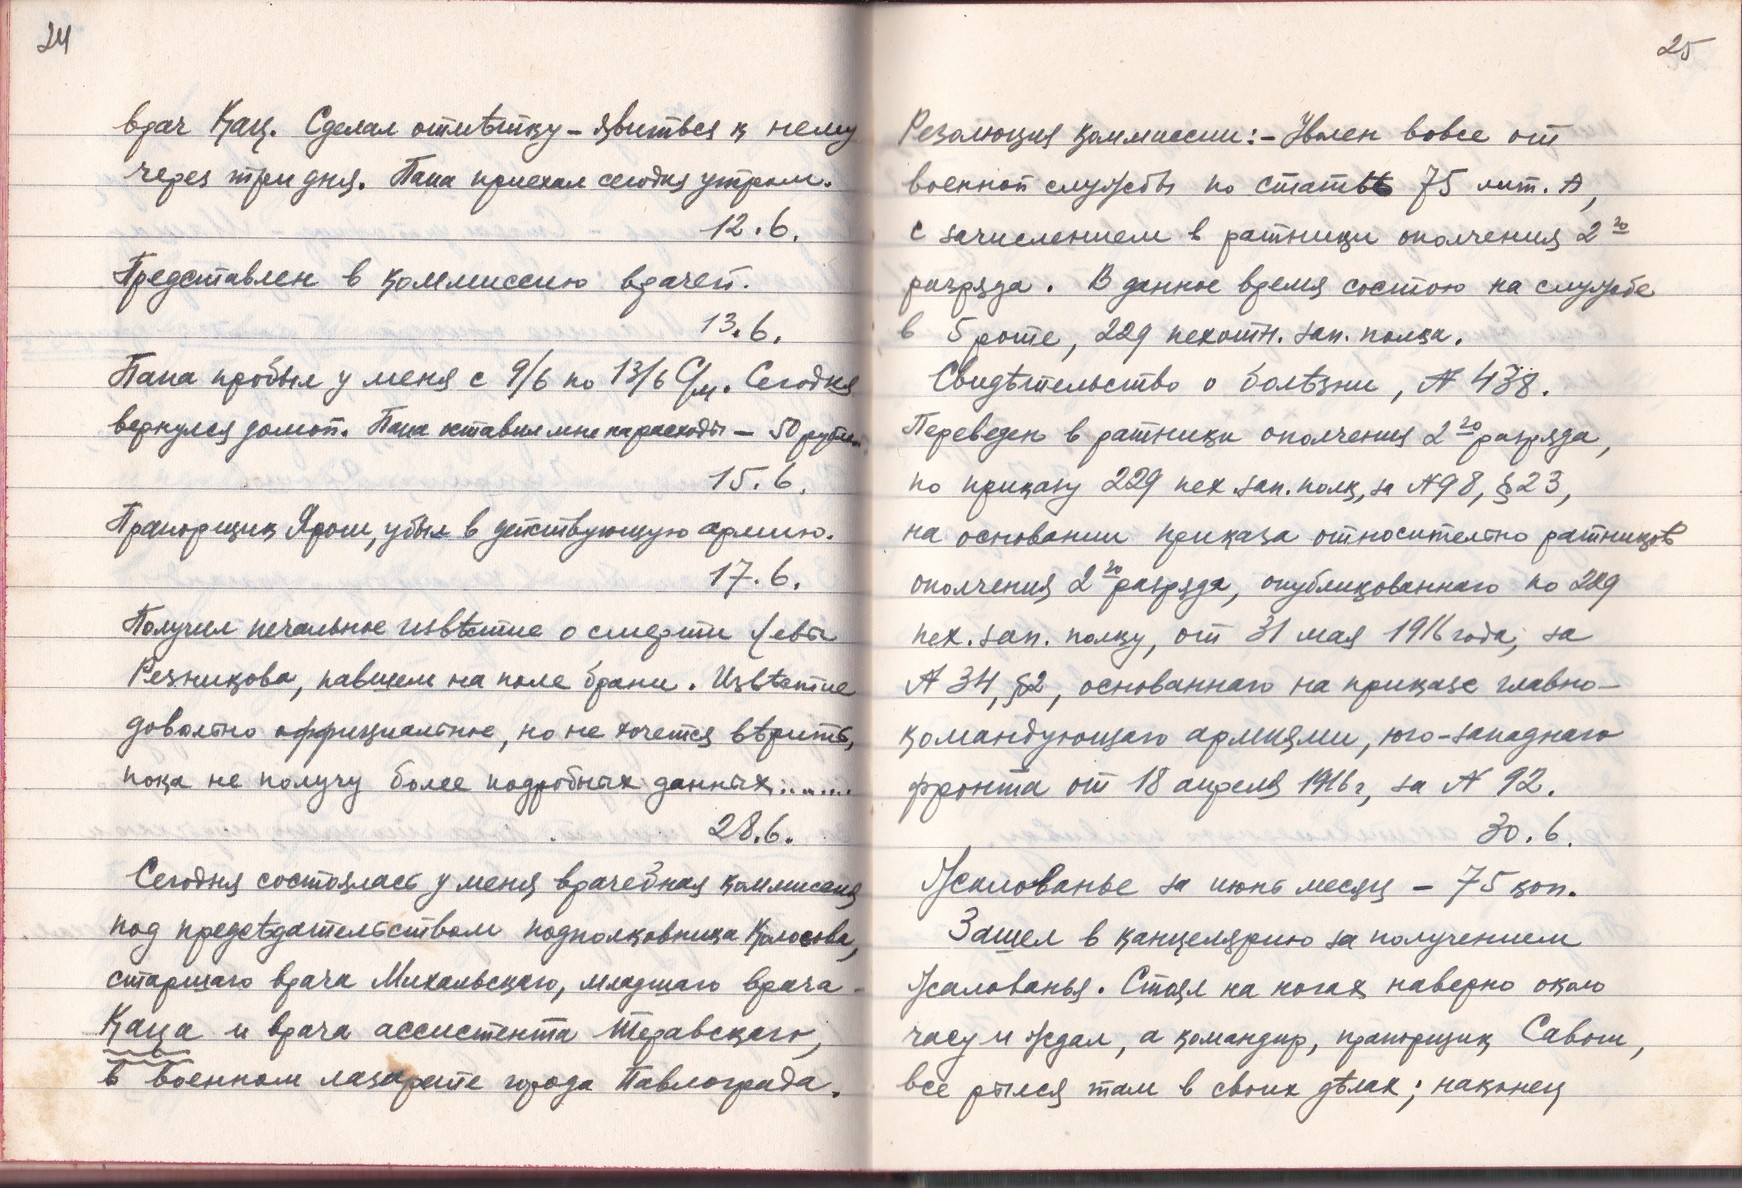 24
врач Кац. Сделал отмѣтку – явиться к нему
через три дня. Папа приехал сегодня утром.
12.6.
Представлен в коммиссию врачей.
13.6.
Папа пробыл у меня с 9/6 по 13/6 С/м. Сегодня
вернулся домой. Папа оставил мне на расходы – 50 рублей.
15.6.
Прапорщик Ярош, убыл в действующую армию.
17.6.
Получил печальное извѣстие о смерти Левы
Резникова, павшем на поле брани. Извѣстие
довольно оффициальное, но не хочется вѣрить,
пока не получу более подробных данных........
28.6.
Сегодня состоялась у меня врачебная коммиссия
под предсѣдательством подполковника Колосова,
старшаго врача Михальскаго, младшаго врача -
Каца и врача ассистента Теравскаго,
в военном лазарете города Павлограда.
25
Резолюция коммиссии: – Уволен вовсе от
военной службы по статьѣ 75 лит. А,
с зачислением в ратники ополчения 2го
разряда. В данное время состою на службе
в 5 роте, 229 пехотн. зап. полка.
Свидѣтельство о болѣзни, № 438.
Переведен в ратники ополчения 2го разряда,
по приказу 229 пех. зап. полк, за №98, §23,
на основании приказа относительно ратников
ополчения 2го разряда, опубликованнаго по 229
пех. зап. полку, от 31 мая 1916 года, за
№ 34, §2, основаннаго на приказе главно-
командующаго армиями, юго-западнаго
фронта от 18 апреля 1916 г, за № 92.
30.6.
Жалованье за июнь месяц – 75 коп.
Зашел в канцелярию за получением
жалованья. Стоял на ногах наверно около
часу и ждал, а командир, прапорщик Савош,
все рылся там в своих дѣлах; наконец